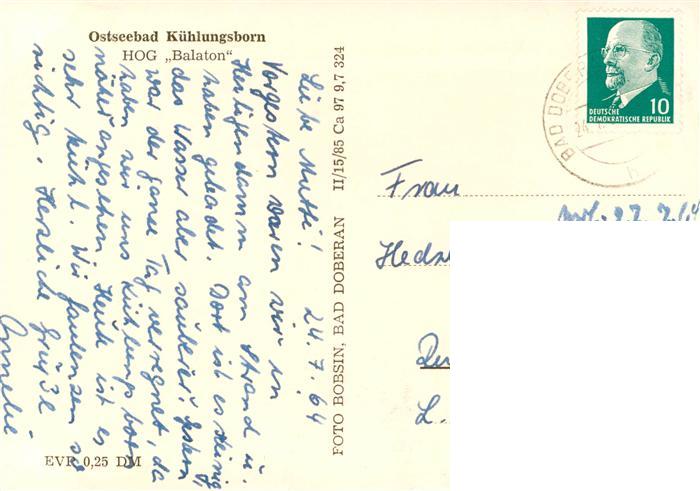 Ostseebad Kühlungsborn
HOG „Balaton“
Liebe Mutti! 24.7.64
Vorgestern waren wir in
Heiligendamm am Strand u.
haben gebadet. Dort ist es steinig
das Wasser aber sauberer. Gestern
war der ganze Tag verregnet, da
haben wir uns Kühlungsborn
näher angesehen. Heute ist es
sehr kühl. Wir faulenzen so
richtig. Herzliche Grüße
Annelie
EVP 0,25 DM
FOTO BOBSIN, BAD DOBERAN II/15/85 Ca 97 9,7 324
DEUTSCHE
DEMOKRATISCHE REPUBLIK
10
BAD DOBER
24.
h
Frau
27. 7. 64
Hedw
L.